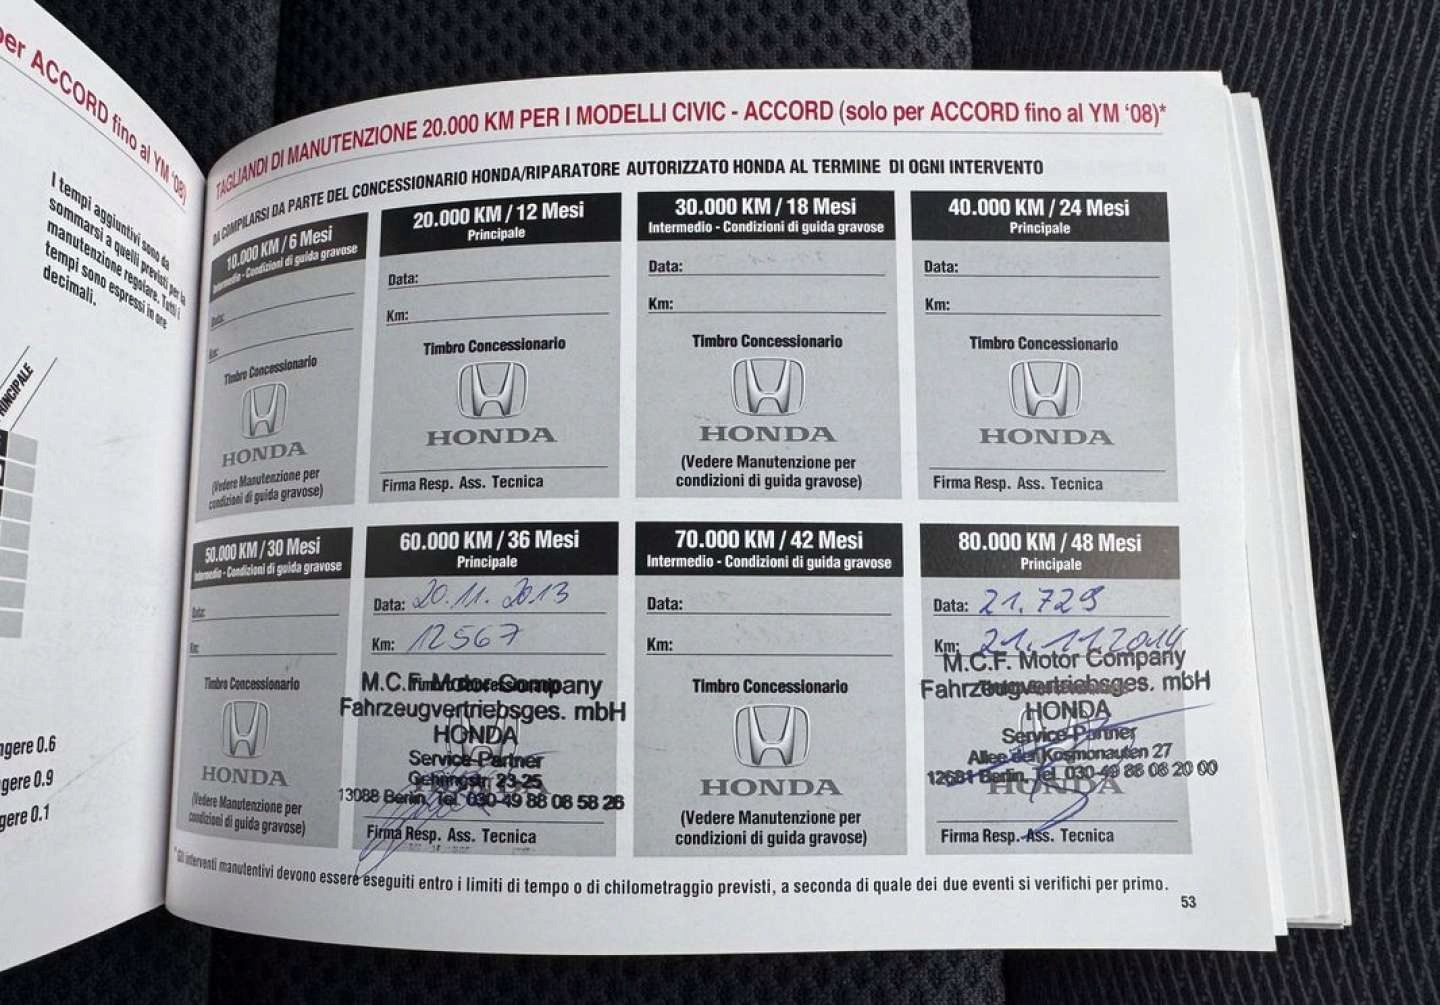 per ACCORD fino al YM '08)
I tempi aggiuntivi sono da
sommarsi a quelli previsti per la
manutenzione regolare. Tutti i
tempi sono espressi in ore
decimali.
PRINCIPALE
ngere 0.6
gere 0.9
gere 0.1
TAGLIANDI DI MANUTENZIONE 20.000 KM PER I MODELLI CIVIC - ACCORD (solo per ACCORD fino al YM '08)*
DA COMPILARSI DA PARTE DEL CONCESSIONARIO HONDA/RIPARATORE AUTORIZZATO HONDA AL TERMINE DI OGNI INTERVENTO
10.000 KM / 6 Mesi
Intermedio - Condizioni di guida gravose
Data:
Km:
Timbro Concessionario
HONDA
(Vedere Manutenzione per
condizioni di guida gravose)
20.000 KM / 12 Mesi
Principale
Data:
Km:
Timbro Concessionario
HONDA
Firma Resp. Ass. Tecnica
30.000 KM / 18 Mesi
Intermedio - Condizioni di guida gravose
Data:
Km:
Timbro Concessionario
HONDA
(Vedere Manutenzione per
condizioni di guida gravose)
40.000 KM / 24 Mesi
Principale
Data:
Km:
Timbro Concessionario
HONDA
Firma Resp. Ass. Tecnica
50.000 KM / 30 Mesi
Intermedio - Condizioni di guida gravose
Data:
Km:
Timbro Concessionario
HONDA
(Vedere Manutenzione per
condizioni di guida gravose)
60.000 KM / 36 Mesi
Principale
Data: 20.11.2013
Km: 12567
M.C.F. Motor Company
Fahrzeugvertriebsges. mbH
HONDA
Service-Partner
23-25
13088 Berlin, Tel. 030-49 88 08 58 28
Firma Resp. Ass. Tecnica
70.000 KM / 42 Mesi
Intermedio - Condizioni di guida gravose
Data:
Km:
Timbro Concessionario
HONDA
(Vedere Manutenzione per
condizioni di guida gravose)
80.000 KM / 48 Mesi
Principale
Data: 21.729
Km: 21.11.2014
M.C.F. Motor Company
Fahrzeugvertriebsges. mbH
HONDA
Service-Partner
Allee der Kosmonauten 27
12681 Berlin, Tel. 030-49 88 08 20 00
HONDA
Firma Resp. Ass. Tecnica
*Gli interventi manutentivi devono essere eseguiti entro i limiti di tempo o di chilometraggio previsti, a seconda di quale dei due eventi si verifichi per primo.
53